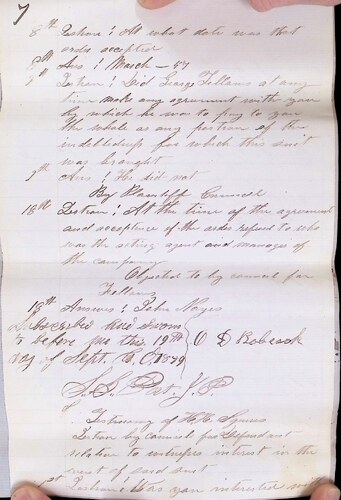 7
8th Question: At what date was that
order accepted
8th Ans: March - 47
9th Question: Did George Fellows at any
time make any agreement with you
by which he was to pay to you
the whole or any portion of the
indebtedness for which this suit
was brought
9th Ans: He did not
By Plaintiffs Council
18th Question: At the time of the agreement
and acceptance of the order referred to who
was the acting agent and manager of
the company
Objected to by council for
Fellows
18th Answer: John Noyes
subscribed and sworn
to before me this 19th
day of Sept. A.D. 1879
O D Babcock
J.P.
Testimony of H.H.
Question by council for Defendant
relative to witnesses interest in the
event of said suit
1st Question: Was you interested with